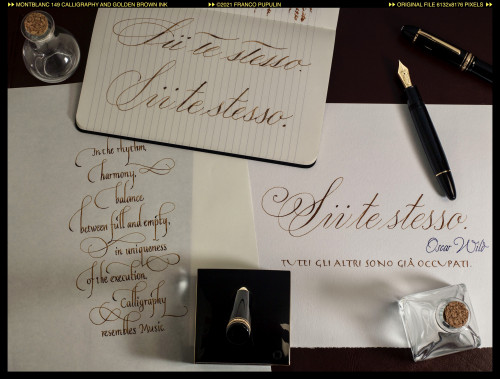 MONTBLANC 149 CALLIGRAPHY AND GOLDEN BROWN INK
©2021 FRANCO PUPULIN
ORIGINAL FILE 6132x8176 PIXELS
Sii te stesso.
Sii te stesso.
In the rhythm,
harmony,
balance
between full and empty,
in uniqueness
of the execution,
Calligraphy
resembles Music
Sii te stesso.
Oscar Wilde
TUTTI GLI ALTRI SONO GIÀ OCCUPATI.